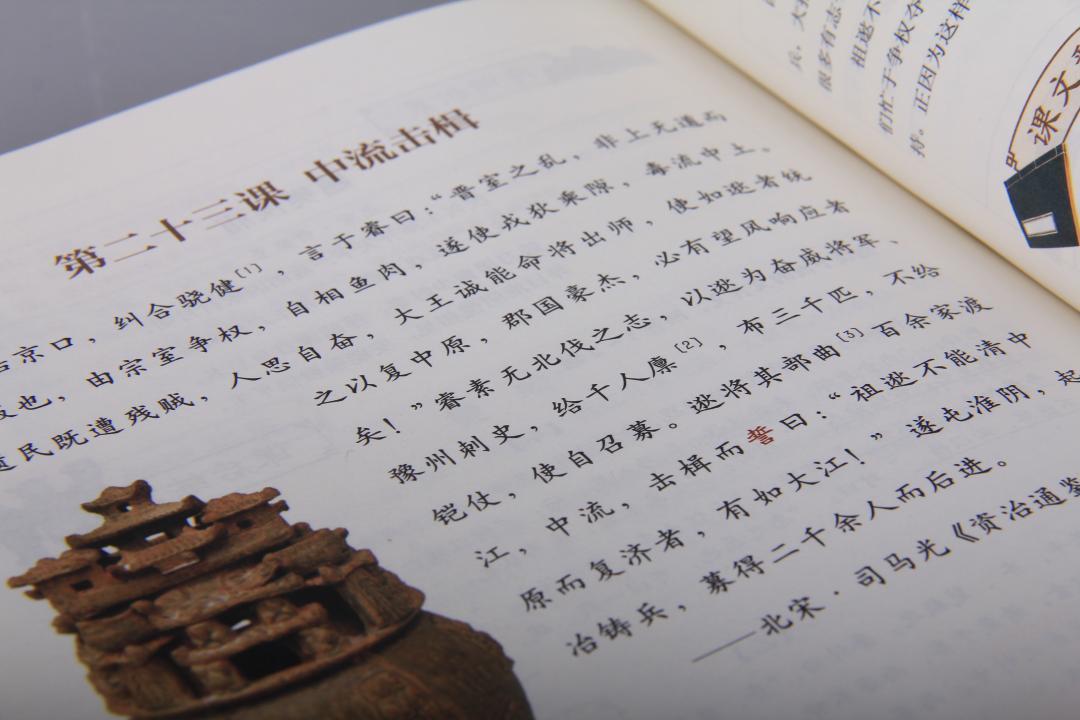 第二十三课 中流击楫
京口，纠合骁健[1]，言于睿曰：“晋室之乱，非上无道而
也，由宗室争权，自相鱼肉，遂使戎狄乘隙，毒流中土。
民既遭残贼，人思自奋，大王诚能命将出师，使如逖者统
之以复中原，郡国豪杰，必有望风响应者
矣！”睿素无北伐之志，以逖为奋威将军、
豫州刺史，给千人廪[2]，布三千匹，不给
铠仗，使自召募。逖将其部曲[3]百余家渡
江，中流，击楫而誓曰：“祖逖不能清中
原而复济者，有如大江！”遂屯淮阴，起
冶铸兵，募得二千余人而后进。
——北宋·司马光《资治通鉴
兵。大
很多有志
祖逖不
们忙于争权夺
持。正因为这样
课文